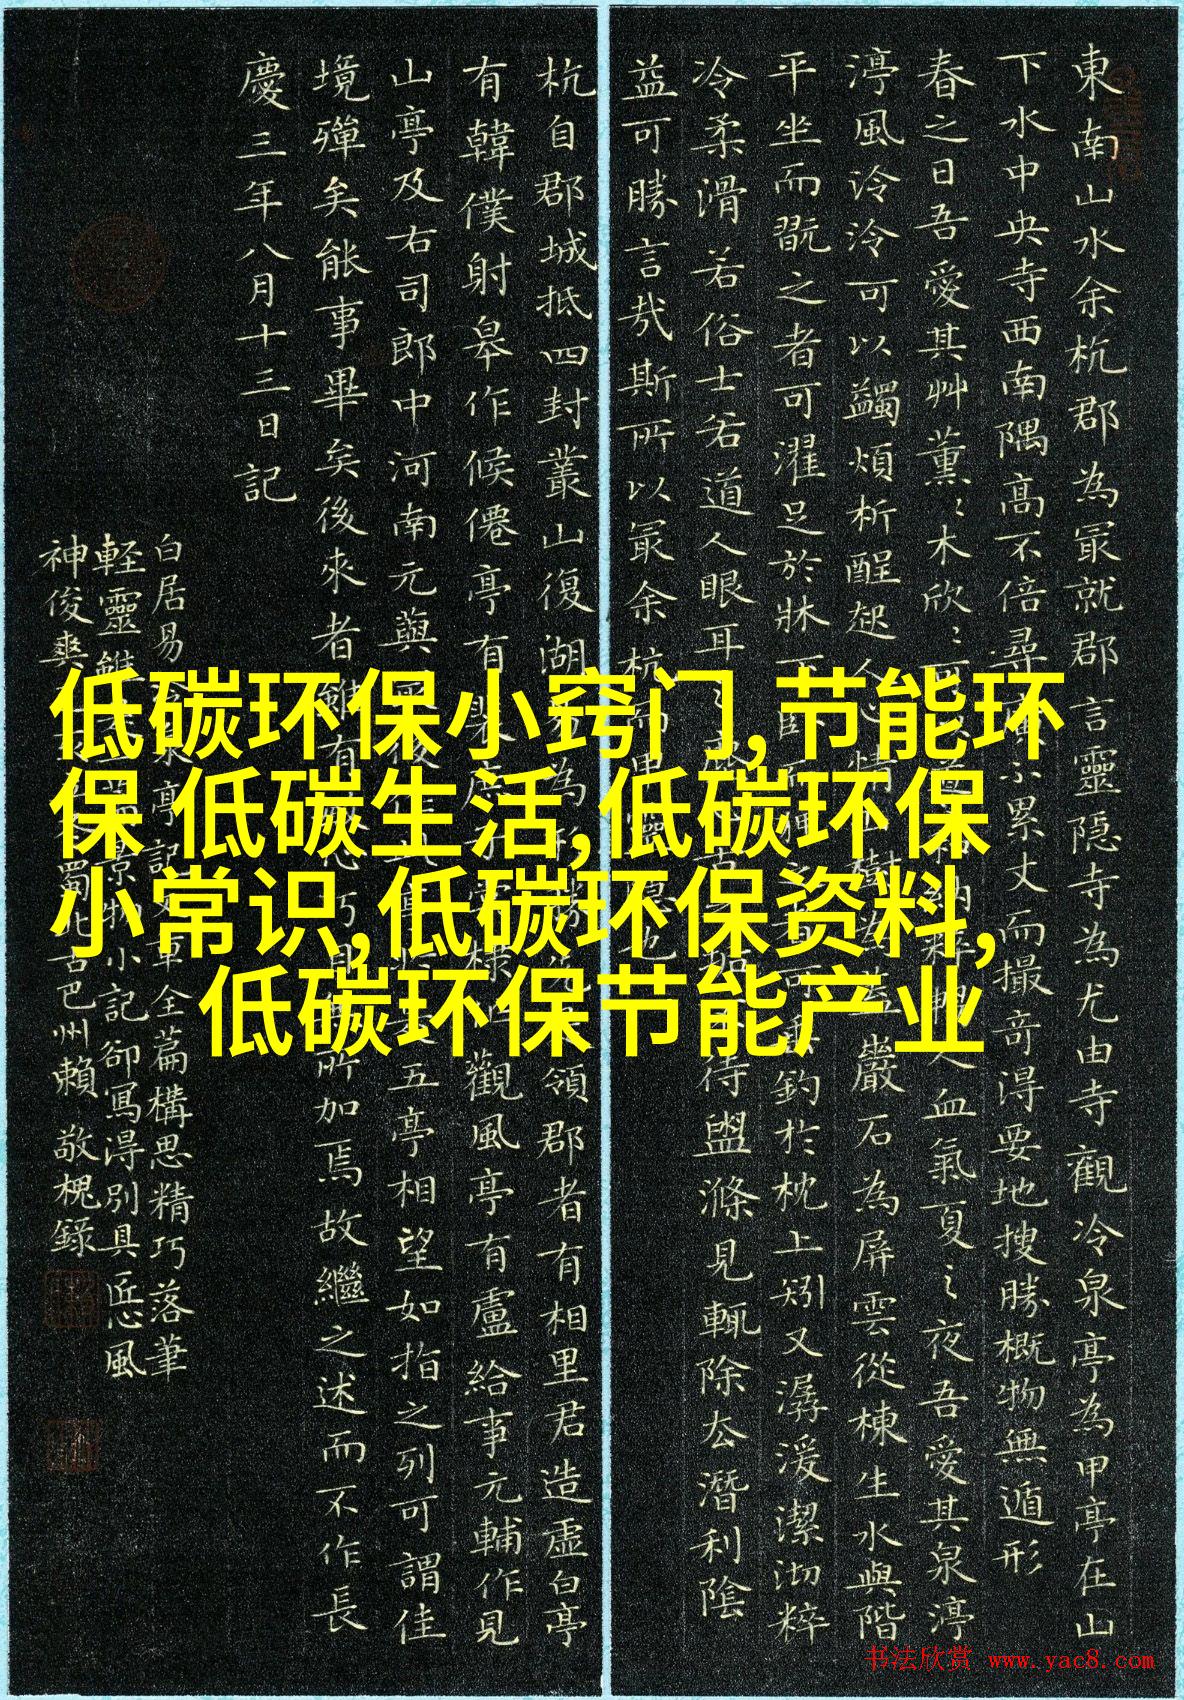 低碳环保小窍门,节能环
保 低碳生活,低碳环保
小常识,低碳环保资料,
低碳环保节能产业
東南山水余杭郡為冣就郡言靈隐寺為尤由寺觀冷泉亭為甲亭在山
下水中央寺西南隅高不倍尋不累丈而撮竒淂要地搜勝概物無遁形
春之日吾愛其艸薰﹅木欣﹅納粹暢人血氣夏之夜吾愛其泉渟
渟風泠泠可以蠲煩析酲起人心情樹為盖巖石為屏雲從棟生水與階
平坐而翫之者可濯足於牀下臥而狎之者可垂釣於枕上矧又潺湲潔沏粹
冷柔滑若俗士若道人眼耳之舌之垢不待盥滌見輒除去潛利陰
益可勝言㢤斯所以冣余杭而甲靈隐也
杭自郡城抵四封叢山復湖易為形勝先領郡者有相里君造虛白亭
有韓僕射皋作候僊亭有裴庶子棠棣作觀風亭有盧給事元輔作見
山亭及右司郎中河南元藇最後作此亭五亭相望如指之列可謂佳
境殫矣能事畢矣後來者雖有敏心巧目無所加焉故繼之述而不作長
慶三年八月十三日記
白居易冷泉亭記章全篇構思精巧落筆
軽靈雖景物小記卻寫淂別具匠心風
神俊爽蜀北古巴州賴敬槐錄
书法欣赏 www.yac8.com